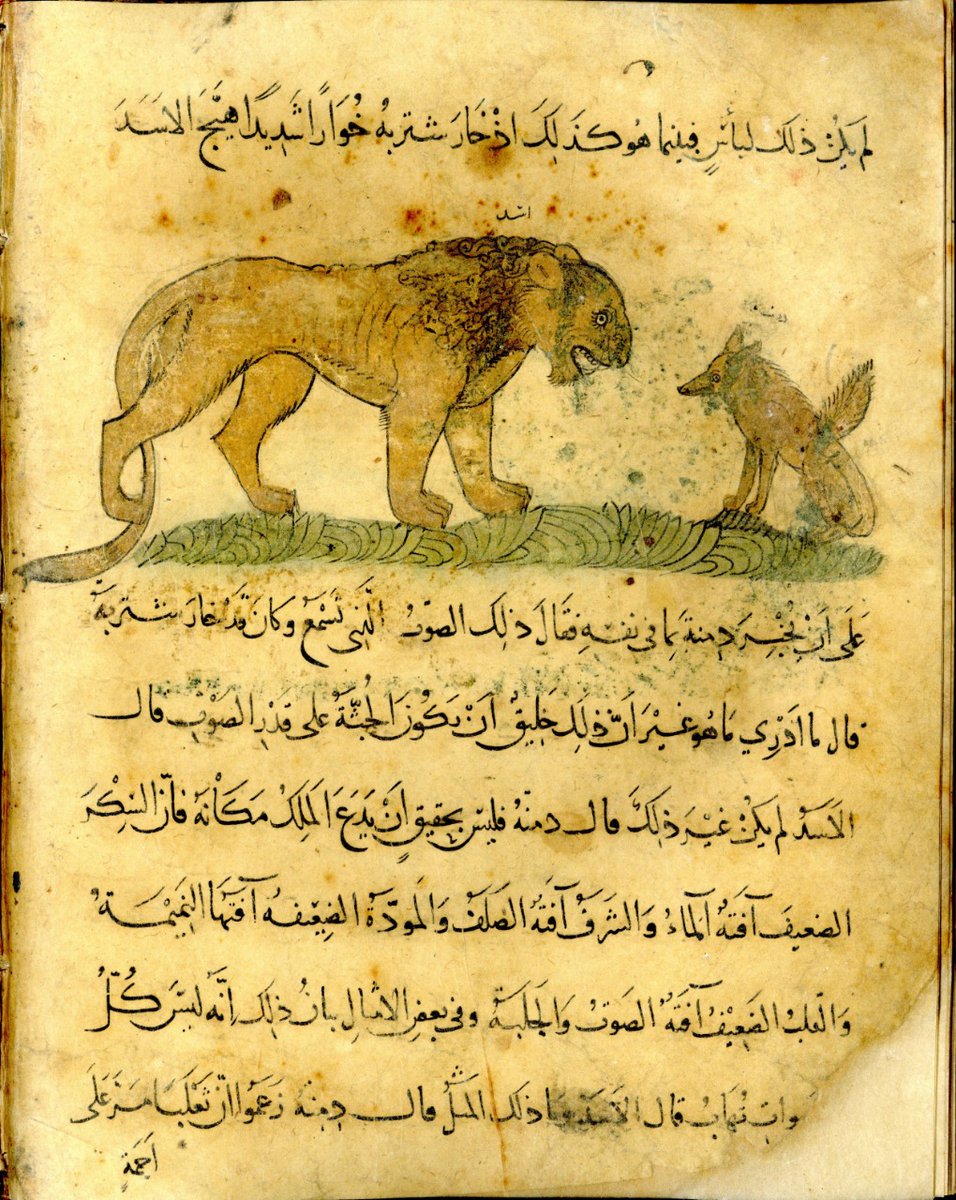 لم يكن ذلك لبأس فبينما هو كذلك اذ خار شتربه خُوارًا شديدًا هيّج الاسَدَ
اسد
على ان يُخبر دمنة بما فى نفسه فقال ذلك الصوت الذى تسمع وكان قد خار شتربه
قال ما ادرى ما هو غير أنّ ذلك خليق أن يكون الجثّة على قدر الصوت قال
الاسد لم يكن غير ذلك قال دمنه فليس بحقيق أن يدع الملك مكانه فانّ السِكْرَ
الضعيف آفته آلماء والشرف آفته الصلف والمودّة الضعيفه آفتها النميمة
والقلب الضعيف آفته الصوت والجلبة وفى بعض الامثال بيان ذلك انّه ليس كُلّ
تهاب قال الاسد وما ذلك المثل قال دمنه زعموا انّ ثعلبا مرّ على
اجمةٍ